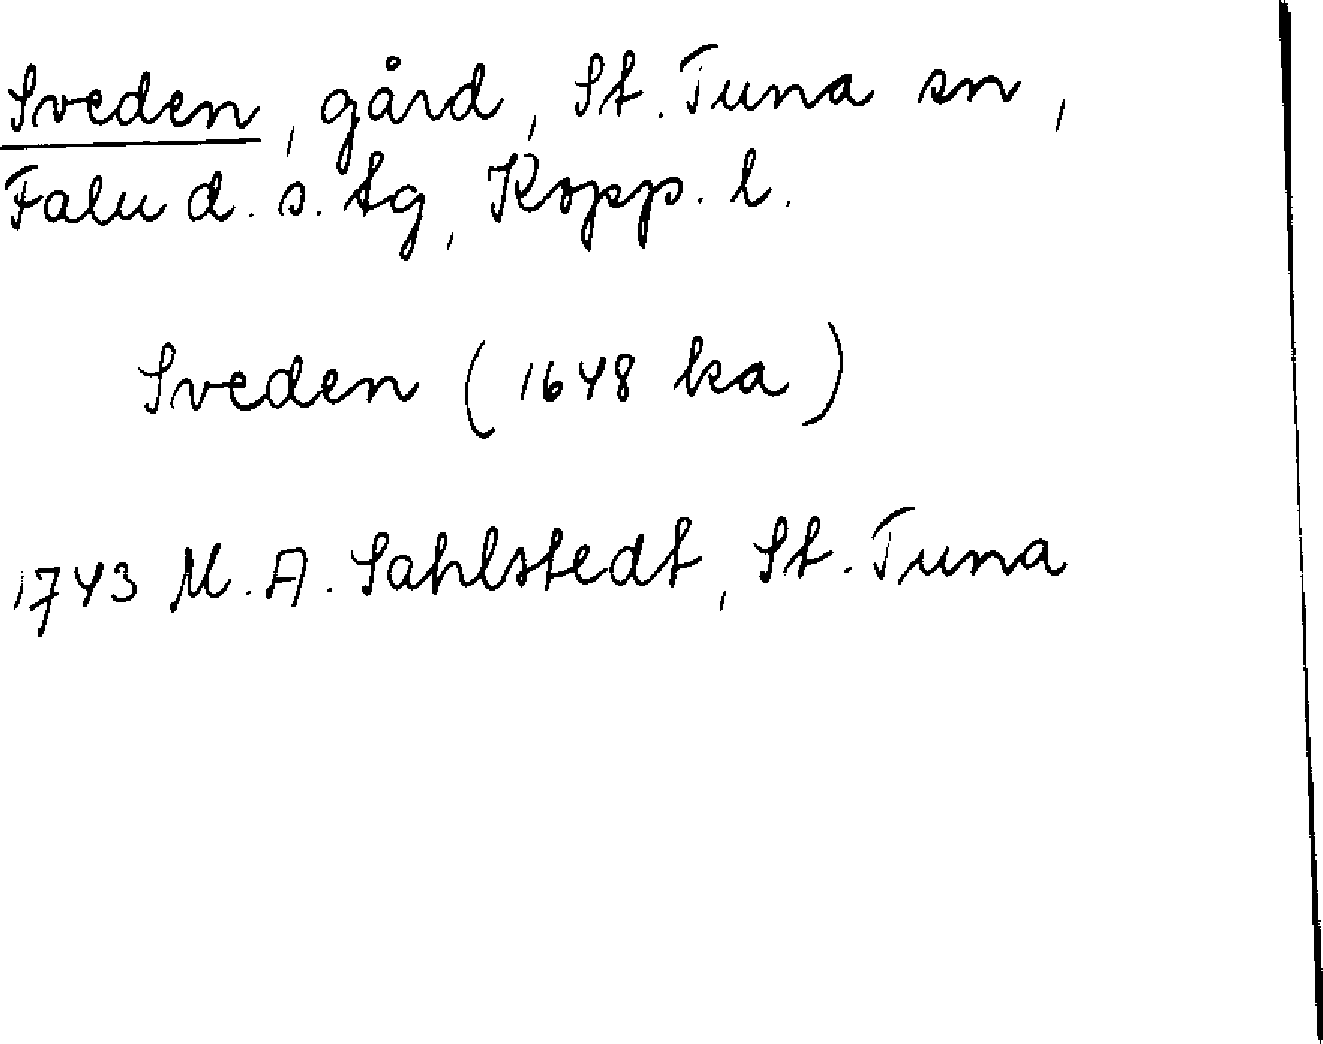 Sveden, gård, St. Tuna sn,
Falu d. s. tg, Kopp. l.
Sveden (1648 ka)
1743 M. A. Sahlstedt, St. Tuna